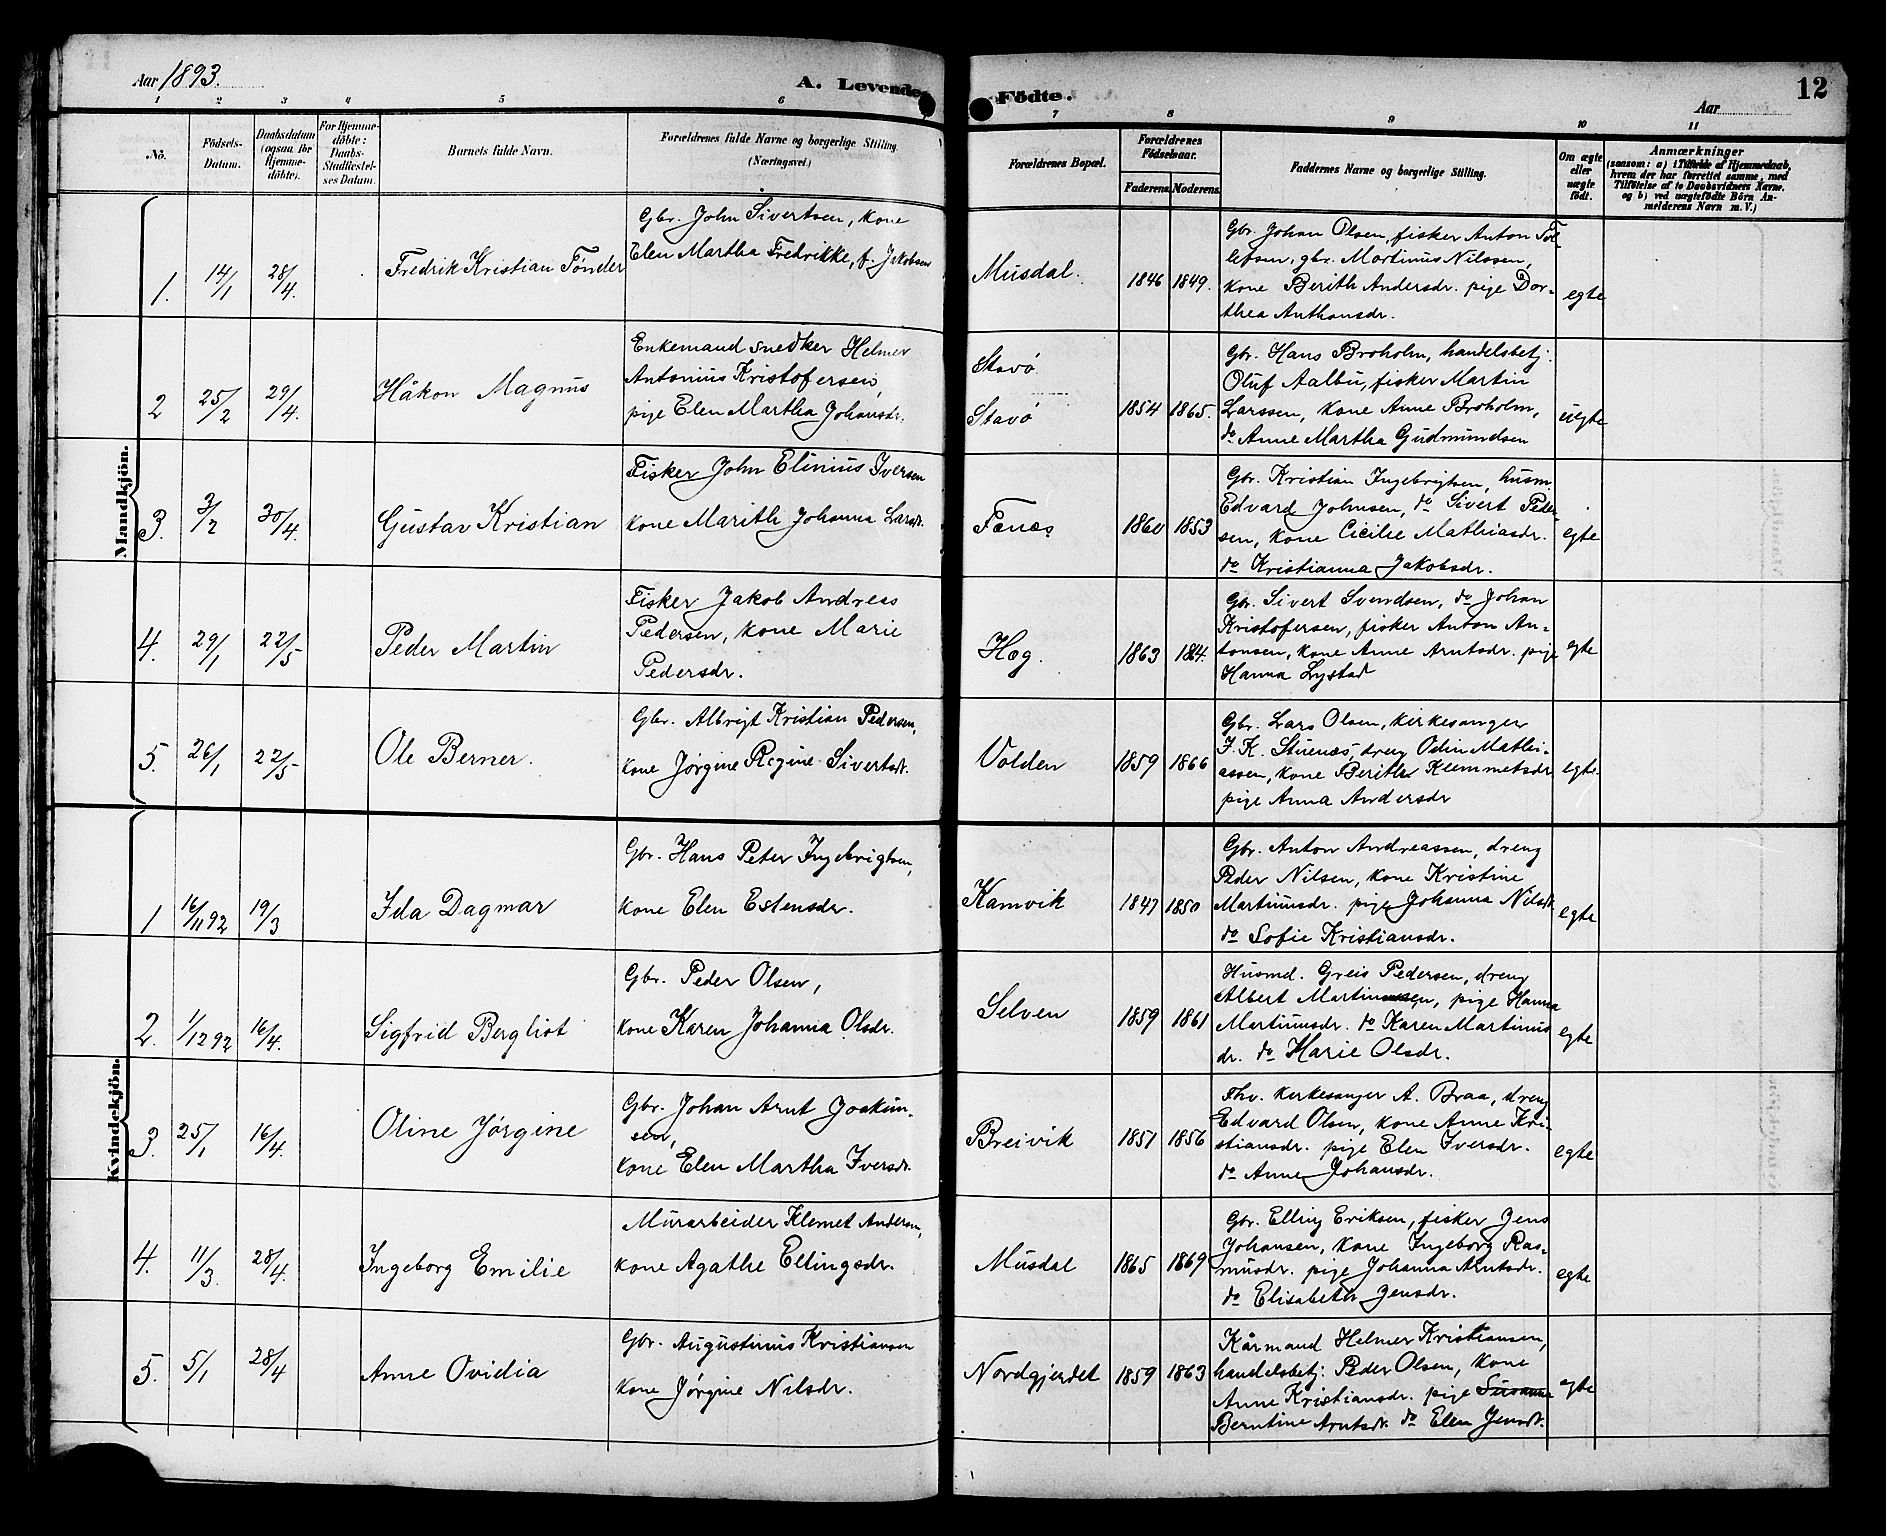 Aar 1893.
A. Levende
Födte.
12
Aar
1 2 3 4 5 6
7 8 9 10 11
No.
Födsels-
Datum.
Daabsdatum
(ogsaa for
Hjemme-
döbte).
For Hjemme-
döbte:
Daabs-
Stadfæstel-
ses Datum.
Barnets fulde Navn.
Forældrenes fulde Navne og borgerlige Stilling.
(Næringsvei)
Forældrenes Bopæl.
Forældrenes
Födselsaar.
Faderens.
Moderens.
Faddernes Navne og borgerlige Stilling.
Om ægte
eller
uægte
födt.
Anmærkninger
(saasom: a) i Tilfælde af Hjemmedaab,
hvem der har forrettet samme, med
Tilföielse af to Daabsvidners Navne.
og b) ved uægtefödte Börn An-
melderens Navn m. V.)
Mandkjön.
1. 14/1 28/4. Fredrik Kristian Tønder
Gbr. John Sivertsen, kone
Elen Martha Fredrikke, f. Jakobsen
Musdal. 1846 1849.
Gbr. Johan Olsen, fisker Anton Tol-
lefsen, gbr. Martinus Nilssen,
kone Berith Andersdr. pige Dor-
thea Anthonsdr.
egte
2 25/2 29/4. Håkon Magnus
Enkemand snedker Helmer
Antonius Kristofersen,
pige Elen Martha Johansdr.
Stavö
Stavö 1854 1865.
Gbr. Hans Broholm, handelsbetj.
Oluf Aalbu, fisker Martin
Larssen, kone Anne Broholm,
do Anne Martha Gudmundsen
uegte
3. 3/2 30/4. Gustav Kristian
Fisker John Elinius Iversen
kone Marith Johanna Larsdt.
Fænæs 1860 1853
Gbr. Kristian Ingebrigtsen, husm.
Edvard Johnsen, do Sivert Peder-
sen, kone Cicilie Mathiasdr.
do Kristianna Jakobsdr.
egte
4. 29/1 22/5 Peder Martin
Fisker Jakob Andreas
Pedersen, kone Marie
Pedersdr.
Hæg. 1863 1864.
Gbr. Sivert Svendsen, do Johan
Kristofersen, fisker Anton An-
tonsen, kone Anne Arntsdr. pige
Hanna Lystad
egte
5. 26/1 22/5 Ole Berner.
Gbr. Albrigt Kristian Pedersen,
kone Jørgine Regine Sivertsdt.
Volden 1859 1866
Gbr. Lars Olsen, kirkesanger
J. K. Sturnæs, dreng Odin Mathi-
assen, kone Berith Klemmetsdr
pige Anna Andersdr
egte.
Kvindekjön.
1 16/11 92 19/3 Ida Dagmar
Gbr. Hans Peter Ingebrigtsen,
kone Elen Estensdr.
Kamvik 1847 1850
Gbr. Anton Andreassen, dreng
Peder Nilsen, kone Kristine
Martinusdr. pige Johanna Nilsdt
do Sofie Kristiansdr.
egte
2. 1/12 92 16/4. Sigfrid Bergliot
Gbr. Peder Olsen,
kone Karen Johanna Olsdr.
Selven 1859 1861
Husmd. Greis Pedersen, dreng
Albert Martinussen, pige Hanna
Martinusdr. do Karen Martinus
dr. do Marie Olsdr.
egte
3. 25/1 16/4. Oline Jørgine
Gbr. Johan Arnt Joakim-
sen,
kone Elen Martha Iversdt.
Breivik 1851 1856
Fhv. kirkesanger A. Braa, dreng
Edvard Olsen, kone Anne Kri-
stiansdr. pige Elen Iversdr.
do Anne Johansdr.
egte
4. 11/3. 28/4. Ingeborg Emilie
Murarbeider Klemet Andersen,
kone Agathe Ellingsdr.
Musdal 1865 1869
Gbr. Elling Eriksen, fisker Jens
Johansen, kone Ingeborg Ras-
musdr. pige Johanna Arntsdr.
do Elisabeth Jensdr.
egte
5. 5/1 28/4 Anne Ovidia
Gbr. Augustinus Kristiansen
kone Jørgine Nilsdr.
Nordgjerdet 1859 1863
Kårmand Helmer Kristiansen,
handelsbetj. Peder Olsen, kone
Anne Kristiansdr. pige Susanna
Berntine Arntsdt. do Elen Jensdt.
egte